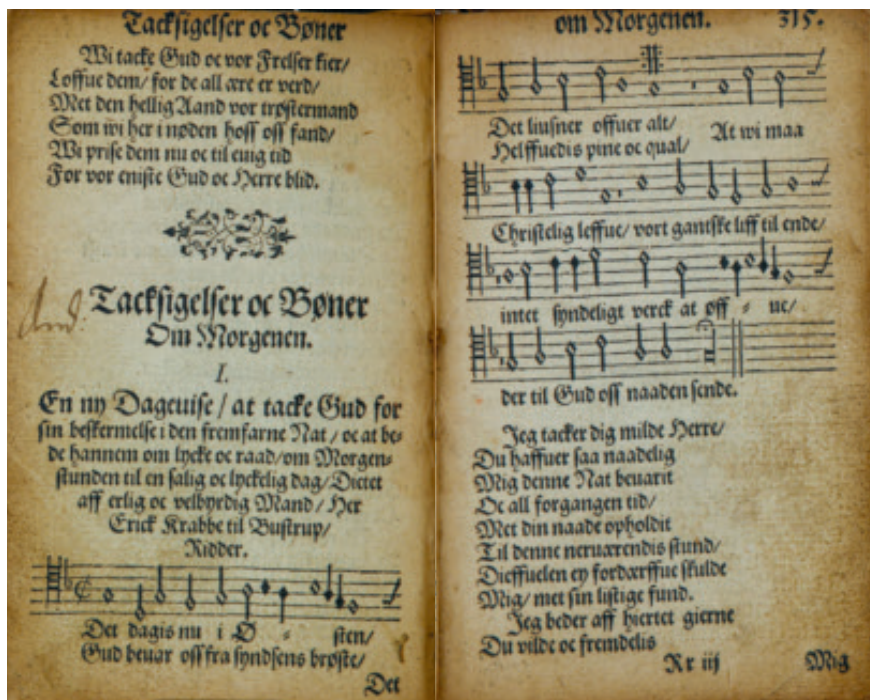 Tacksigelser oc Bøner
Wi tacke Gud oc vor Frelser kier/
Loffue dem/ for de all ære er verd/
Met den hellig Aand vor trøstermand
Som wi her i nøden hoss oss fand/
Wi prise dem nu oc til euig tid
For vor eniste Gud oc Herre blid.
Tacksigelser oc Bøner
Om Morgenen.
I.
En ny Dageuise / at tacke Gud for
sin beskermelse i den fremfarne Nat / oc at be-
de hannem om lycke oc raad/ om Morgen-
stunden til en salig oc lyckelig dag/ Dictet
aff erlig oc velbyrdig Mand / Her
Erick Krabbe til Bustrup/
Ridder.
Det dagis nu i Ø - sten/
Gud beuar oss fra syndsens brøste/
Det
om Morgenen. 315.
Det liusner offuer alt/ At wi maa
Helffuedis pine oc qual/
Christelig leffue/ vort gantske liff til ende/
intet syndeligt verck at øff - ue/
der til Gud oss naaden sende.
Jeg tacker dig milde Herre/
Du haffuer saa naadelig
Mig denne Nat beuarit
Oc all forgangen tid/
Met din naade opholdit
Til denne neruærendis stund/
Dieffuelen ey fordærffue skulde
Mig/ met sin listige fund.
Jeg beder aff hiertet gierne
Du vilde oc fremdelis
Rr iij Mig